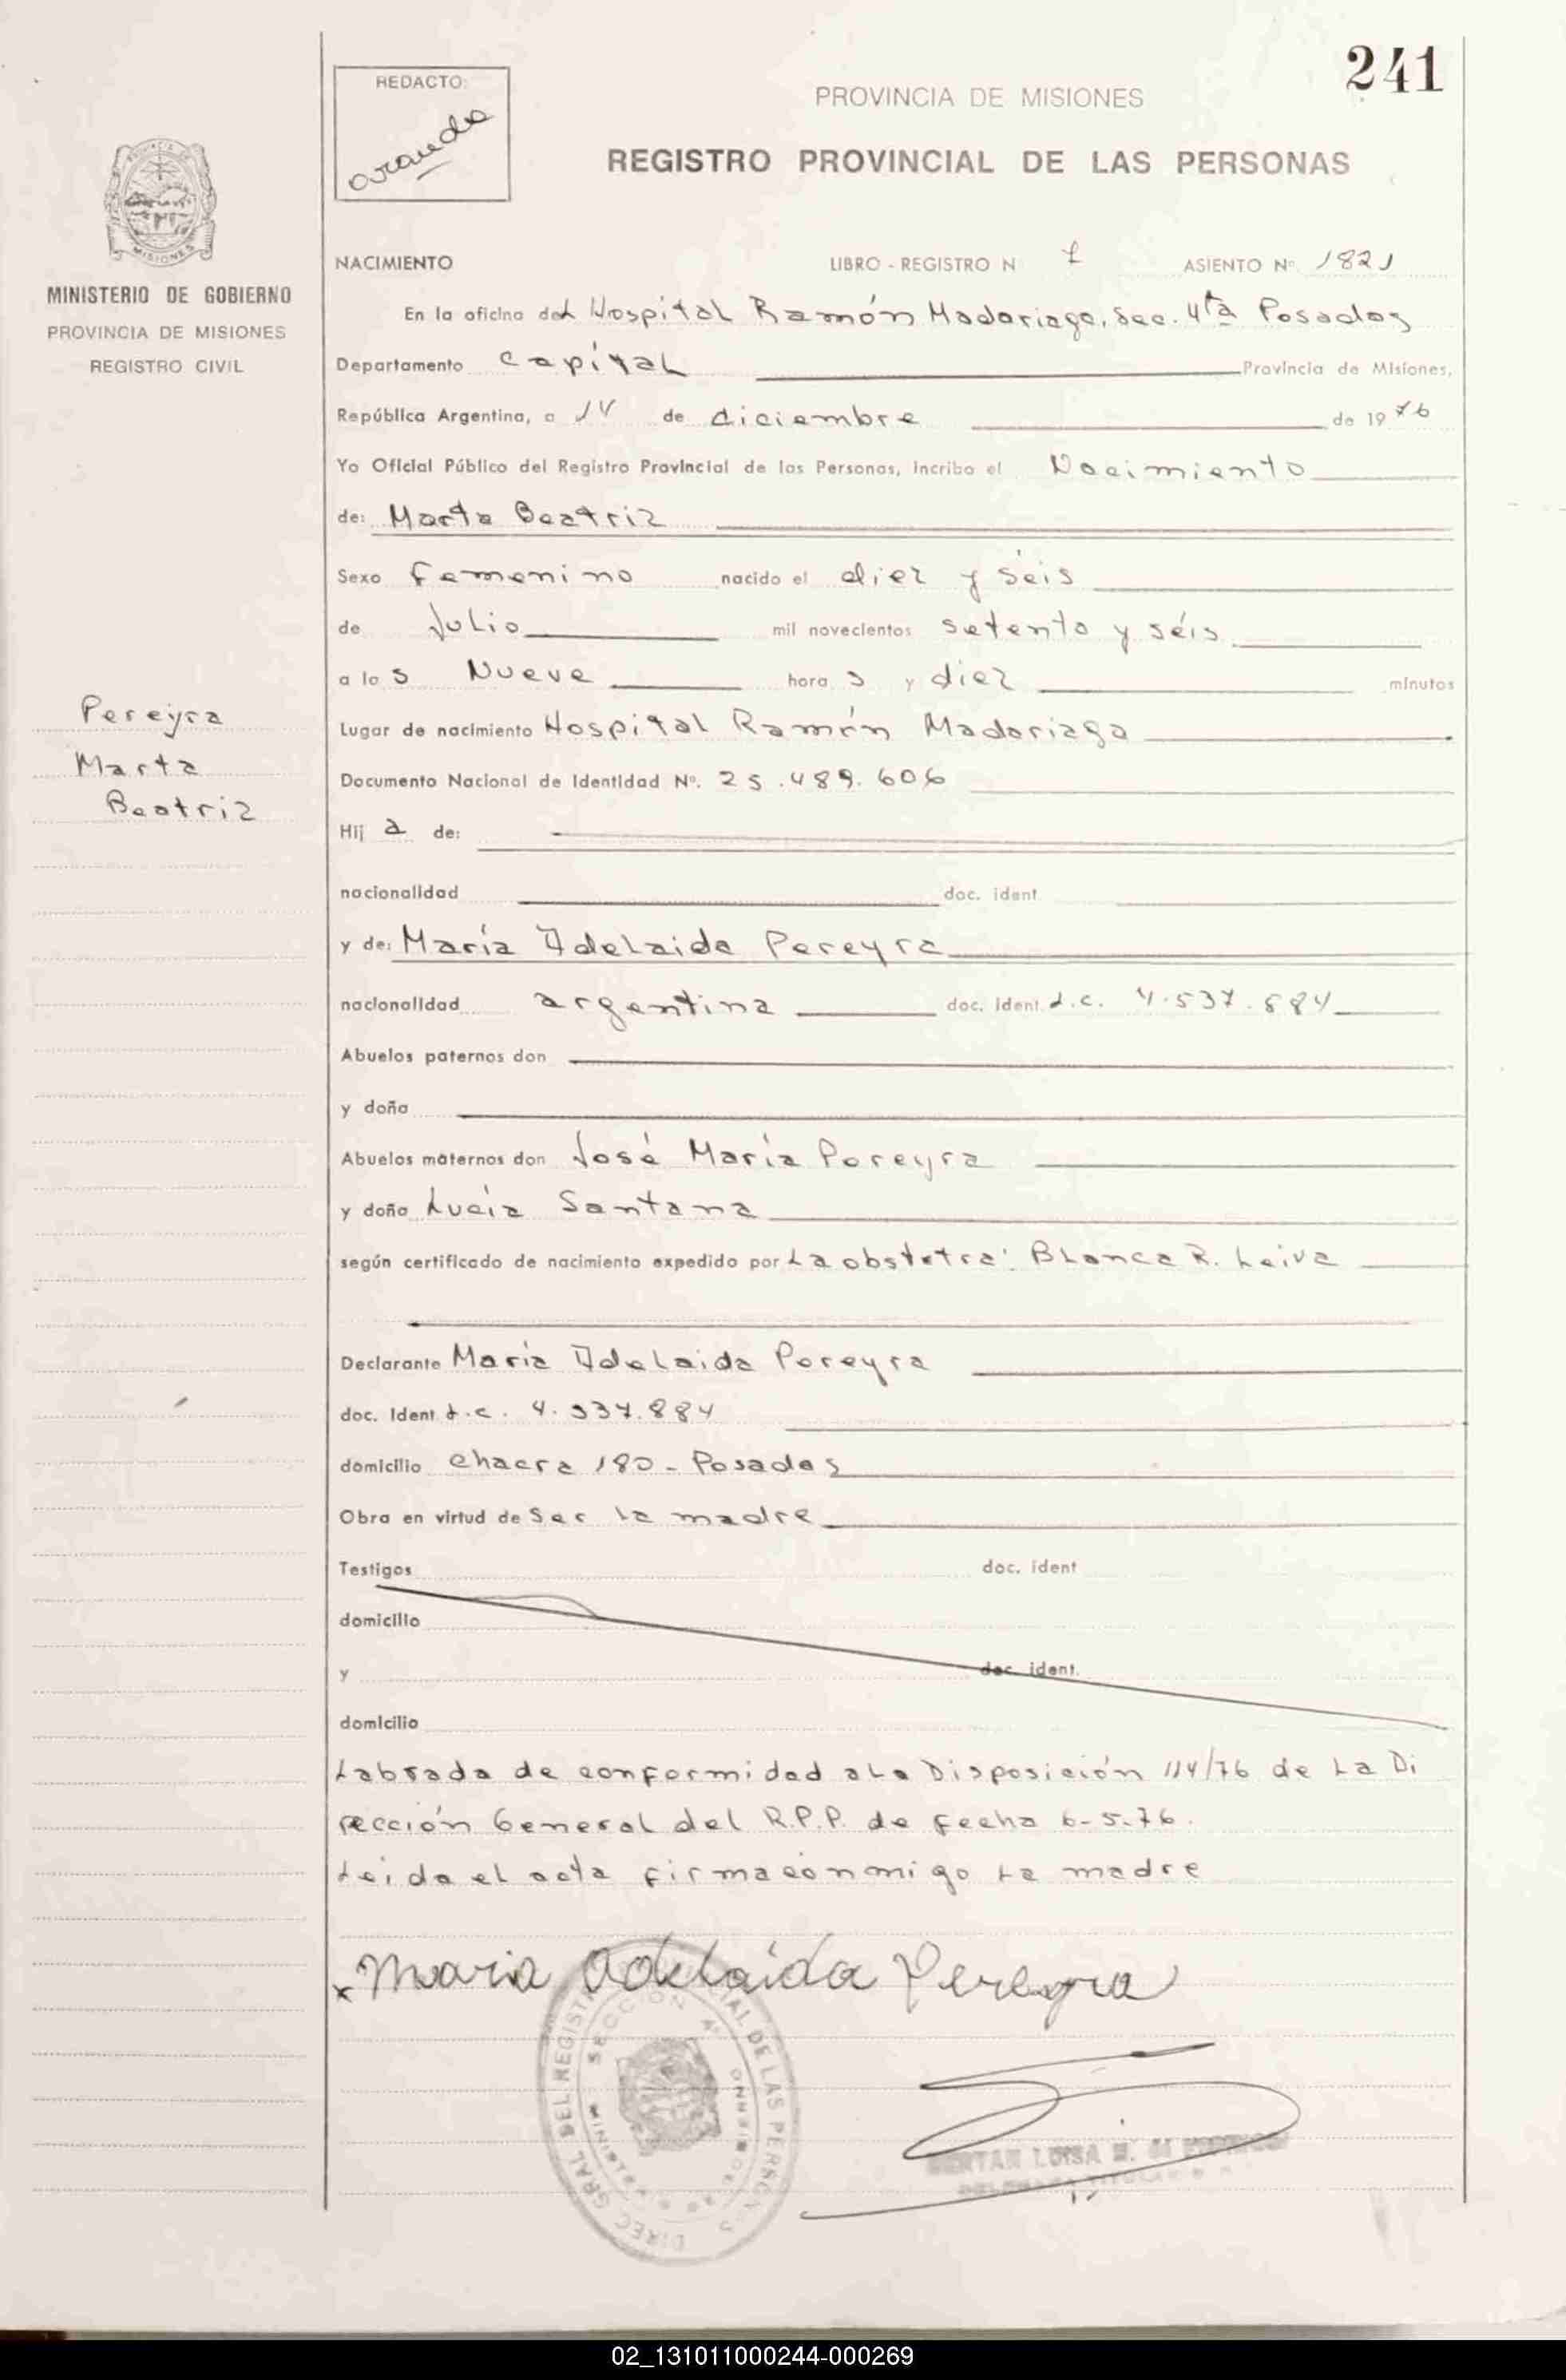 241
REDACTO:
aranda
PROVINCIA DE MISIONES
REGISTRO PROVINCIAL DE LAS PERSONAS
MISIONES
MINISTERIO DE GOBIERNO
PROVINCIA DE MISIONES
REGISTRO CIVIL
NACIMIENTO LIBRO - REGISTRO N 7 ASIENTO Nº 1821
En la oficina del Hospital Ramón Madariaga, Sec. 4ta Posadas
Departamento Capital Provincia de Misiones,
República Argentina, a 14 de diciembre de 1976
Yo Oficial Público del Registro Provincial de las Personas, incribo el Nacimiento
de: Marta Beatriz
Sexo femenino nacido el diez y séis
de Julio mil novecientos setenta y séis
a las Nueve horas y diez minutos
Lugar de nacimiento Hospital Ramón Madariaga
Documento Nacional de Identidad Nº. 25.489.606
Hija de:
nacionalidad doc. ident.
y de: María Adelaida Pereyra
nacionalidad argentina doc. ident. L.C. 4.537.884
Abuelos paternos don
y doña
Abuelos maternos don José María Pereyra
y doña Lucía Santana
según certificado de nacimiento expedido por La obstetra: Blanca R. Leiva
Declarante María Adelaida Pereyra
doc. Ident L.c. 4.537.884
domicilio chacra 180 - Posadas
Obra en virtud de ser la madre
Testigos doc. ident
domicilio
y doc. ident.
domicilio
Labrada de conformidad a La Disposición 114/76 de La Di
rección General del R.P.P. de fecha 6-5-76.
Leida el acta firma conmigo La madre
x Maria Adelaida Pereyra
Pereyra
Marta
Beatriz
DIREC. GRAL DEL REGISTRO PROVINCIAL DE LAS PERSONAS
SECCION 4º
LUISA
02_131011000244-000269